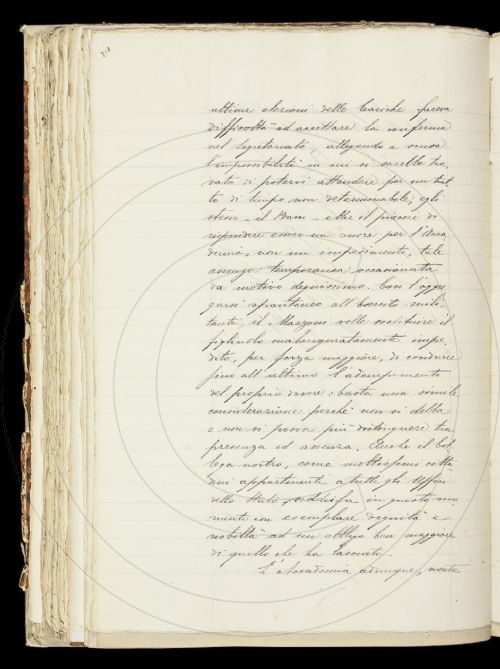 218
ultime elezioni delle cariche faceva
difficoltà ad accettare la conferma
nel segretariato, allegando a scusa
l'impossibilità in cui si sarebbe tro-
vato di potervi attendere per un trat-
to di tempo non determinabile, egli
stesso il Bam ebbe il piacere di
rispondere essere un onore per l'Acca-
demia, non un impedimento, tale
assenza temporanea, occasionata
da motivo degnissimo. Con l'aggre-
garsi spontaneo all'Esercito mili-
tante, il Manzoni volle sostituire il
figliuolo malauguratamente impe-
dito, per forza maggiore, di condurre
fino all'ultimo l'adempimento
del proprio dovere: basta una simile
considerazione perchè non si debba
e non si possa più distinguere tra
presenza ed assenza. Anche il Col-
lega nostro, come moltissimi citta-
dini appartenenti a tutti gli Uffici
dello Stato, soddisfa in questo mo-
mento con esemplare dignità e
nobiltà ad un obbligo ben maggiore
di quello che ha lasciato.
L'Accademia adunque, mentre